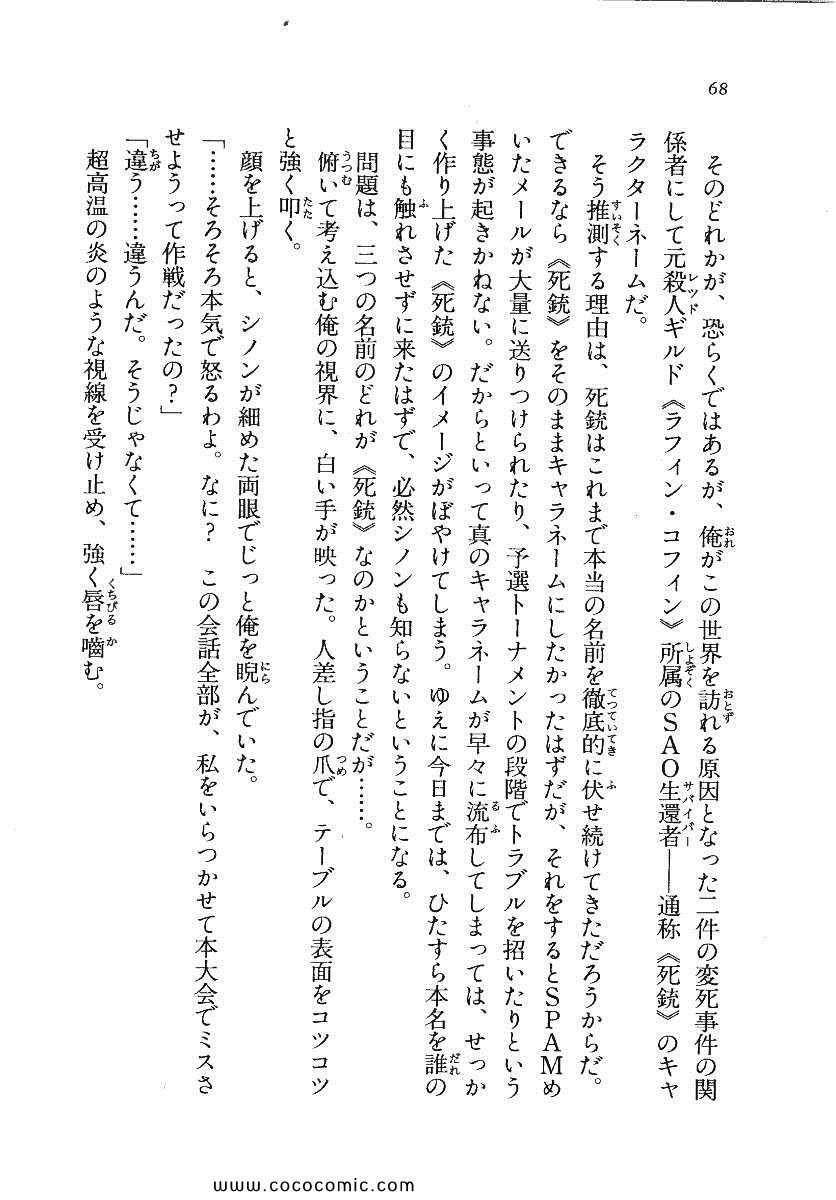 68
そのどれかが、恐らくではあるが、俺がこの世界を訪れる原因となった二件の変死事件の関
係者にして元殺人ギルド《ラフィン・コフィン》所属のSAO生還者――通称《死銃》のキャ
ラクターネームだ。
そう推測する理由は、死銃はこれまで本当の名前を徹底的に伏せ続けてきただろうからだ。
できるなら《死銃》をそのままキャラネームにしたかったはずだが、それをするとSPAMめ
いたメールが大量に送りつけられたり、予選トーナメントの段階でトラブルを招いたりという
事態が起きかねない。だからといって真のキャラネームが早々に流布してしまっては、せっか
く作り上げた《死銃》のイメージがぼやけてしまう。ゆえに今日までは、ひたすら本名を誰の
目にも触れさせずに来たはずで、必然シノンも知らないということになる。
問題は、三つの名前のどれが《死銃》なのかということだが……。
俯いて考え込む俺の視界に、白い手が映った。人差し指の爪で、テーブルの表面をコツコツ
と強く叩く。
顔を上げると、シノンが細めた両眼でじっと俺を睨んでいた。
「……そろそろ本気で怒るわよ。なに？　この会話全部が、私をいらつかせて本大会でミスさ
せようって作戦だったの？」
「違う……違うんだ。そうじゃなくて……」
超高温の炎のような視線を受け止め、強く唇を嚙む。
www.cococomic.com